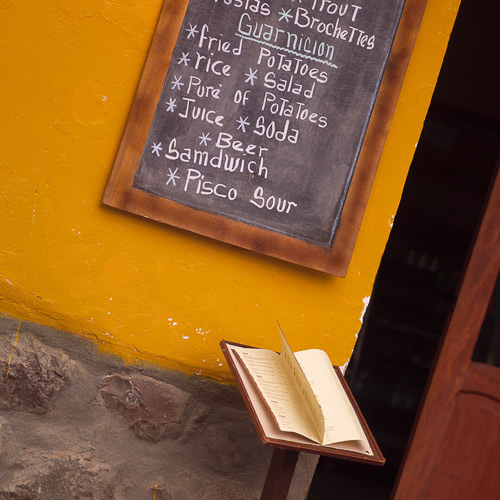 * Trout
Pastas * Brochettes
Guarnicion
* Fried Potatoes
* rice * Salad
* Puré of Potatoes
* Juice * Soda
* Beer
* Samdwich
* Pisco Sour